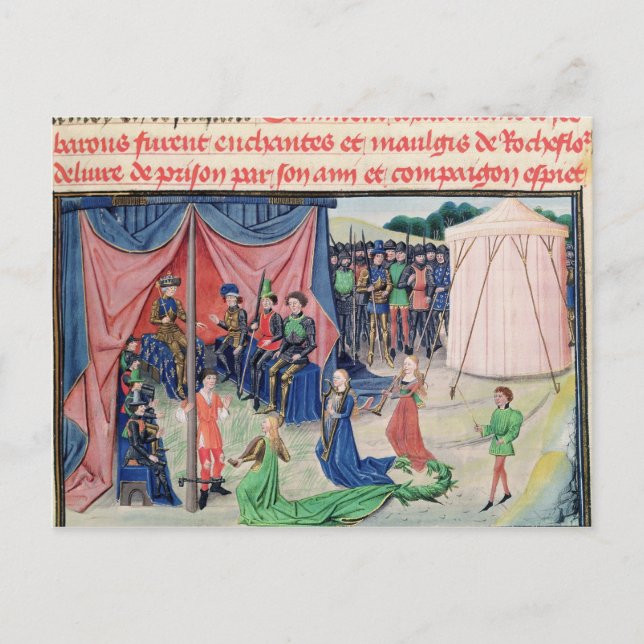 barons furent enchantes et maulgis de Rocheflor
deliure de prison par son ann et compaignon espiet